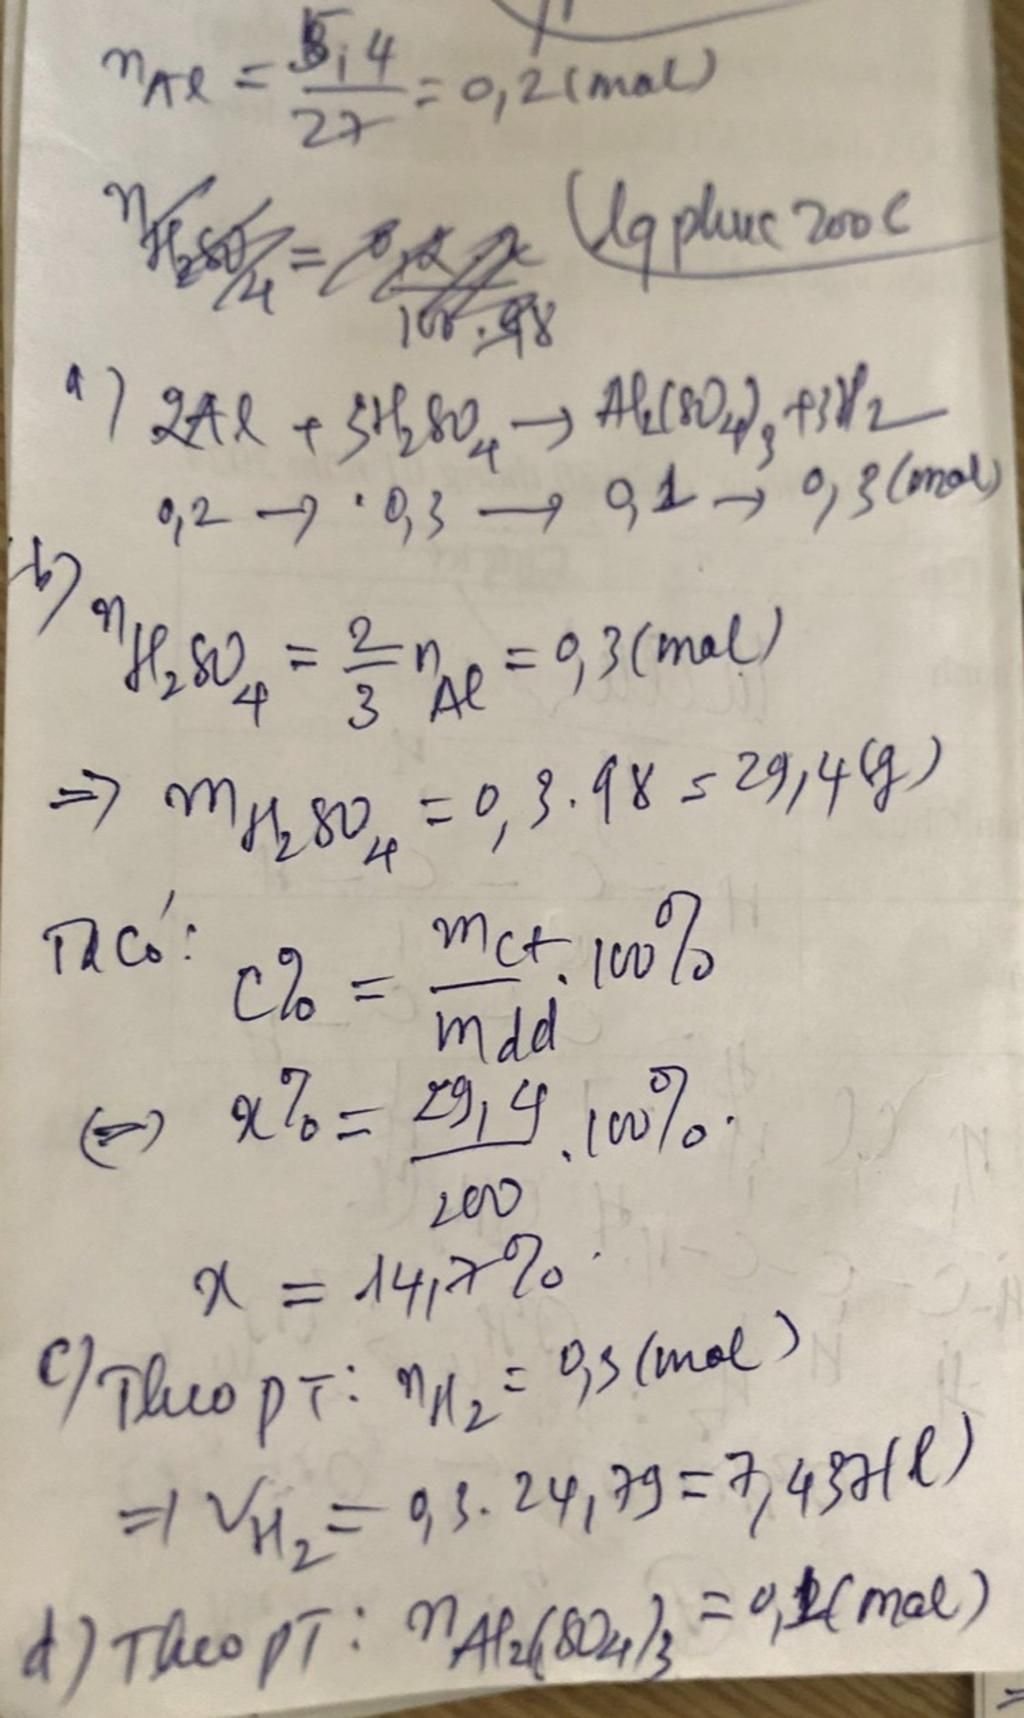 nAl = 5,4/27 = 0,2 (mol)
nH₂SO₄ =
100.98
a) 2Al + 3H₂SO₄ → Al₂(SO₄)₃ + 3H₂
0,2 → 0,3 → 0,1 → 0,3 (mol)
b) nH₂SO₄ = 2/3 nAl = 0,3 (mol)
=> mH₂SO₄ = 0,3.98 = 29,4 (g)
Ta có:
C% = mct/mdd . 100%
(=) x% = 29,4/200 . 100%.
x = 14,7%
c) Theo PT: nH₂ = 0,3 (mol)
=> VH₂ = 0,3. 24,79 = 7,437 (l)
d) Theo PT: nAl₂(SO₄)₃ = 0,1 (mol)